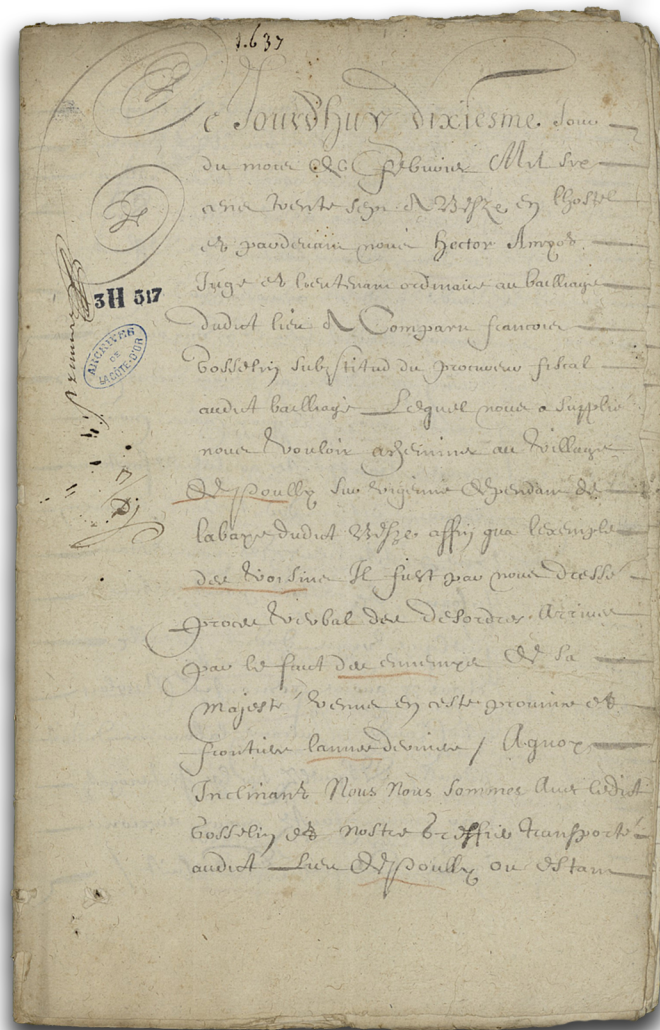 1637
Ce Jourd'huy dixiesme Jour
du mois de Febvrier Mil six
cens trente sept A Besze en lhostel
et pardevant nous Hector
Juge et lieutenant ordinaire au bailliage
dudict lieu A Comparu francois
Gosselin substitud du procureur fiscal
audict bailliage Lequel nous a supplié
nous vouloir acheminer au village
de Poully sur vigenne despendant de
labaye dudict Besze affin qua lexemple
des voisins Il fust par nous dressé
proces verbal des desordres Arrives
par le faict des ennemys de sa
Majesté venus en ceste province et
frontiere lannee derniere / A quoy
Inclinant Nous Nous sommes Avec ledict
Gosselin et nostre Greffier transporté
audict Lieu de Poully ou estant
3H 517
ARCHIVES
DE
LA CÔTE-D'OR